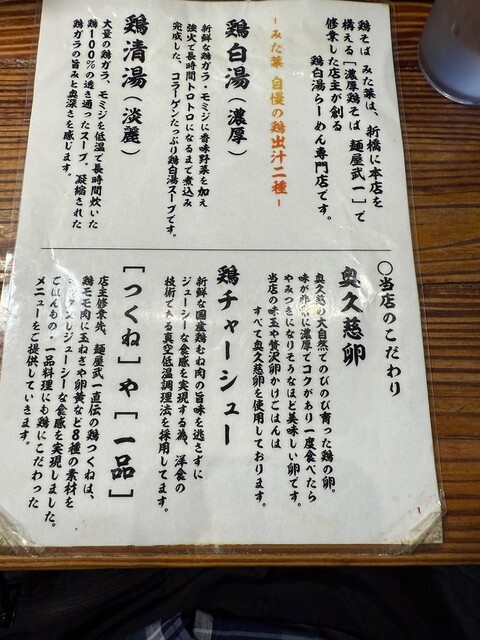 鶏そば みた葉は、新橋に本店を
構える「濃厚鶏そば 麺屋武一」で
修業した店主が創る
鶏白湯らーめん専門店です。
-みた葉 自慢の鶏出汁二種-
鶏白湯（濃厚）
新鮮な鶏ガラ・モミジに香味野菜を加え
強火で長時間トロトロになるまで煮込み
完成した、コラーゲンたっぷり鶏白湯スープです。
鶏清湯（淡麗）
大量の鶏ガラ、モミジを低温で長時間炊いた
鶏100％の透き通ったスープ。凝縮された
鶏ガラの旨みと奥深さを感じます。
〇当店のこだわり
奥久慈卵
奥久慈の大自然でのびのび育った鶏の卵。
味が非常に濃厚でコクがあり一度食べたら
やみつきになりそうなほど美味しい卵です。
当店の味玉や贅沢卵かけごはんは
すべて奥久慈卵を使用しております。
鶏チャーシュー
新鮮な国産鶏むね肉の旨味を逃さずに
ジューシーな食感を実現する為、洋食の
技術である真空低温調理法を採用してます。
［つくね］や［一品］
店主修業先、麺屋武一直伝の鶏つくねは、
鶏モモ肉に玉ねぎや卵黄など8種の素材を
ミックスしジューシーな食感を実現しました。
ごはんもの・一品料理にも鶏にこだわった
メニューをご提供していきます。